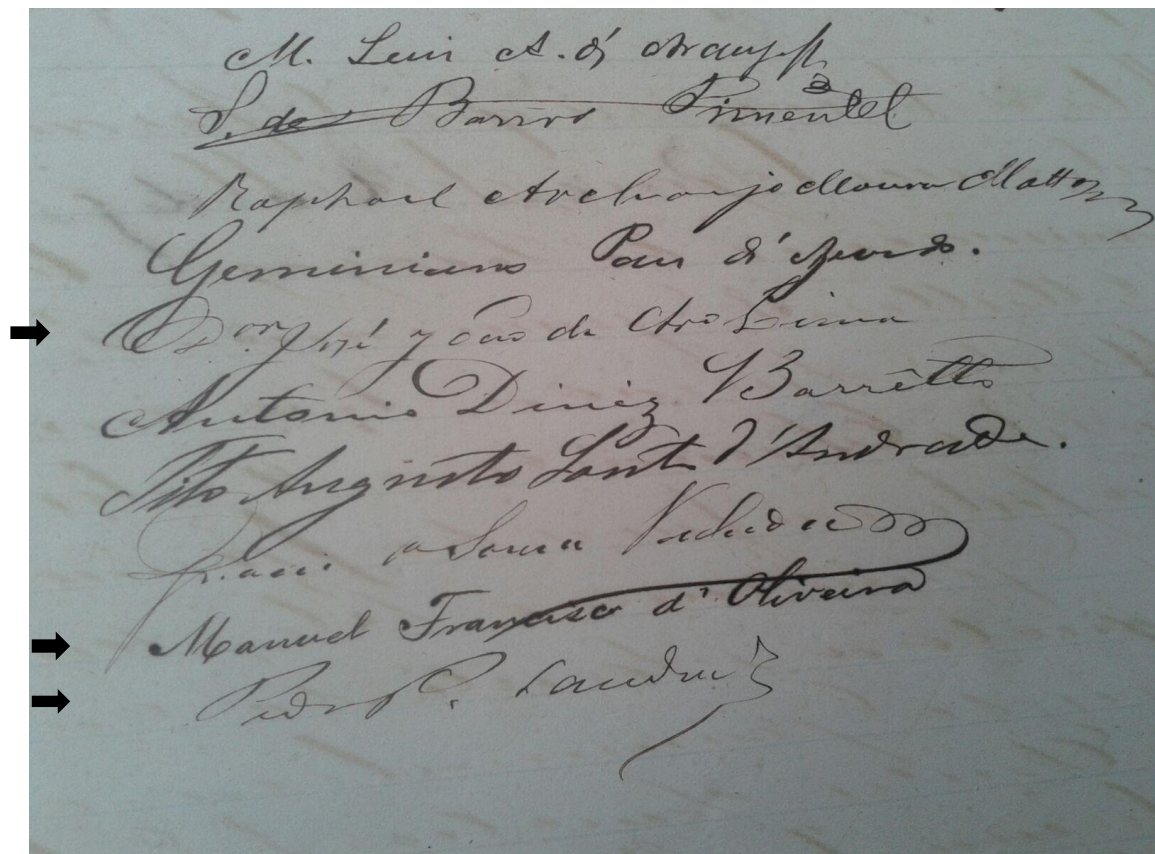 M. Luis A. d'Araujo
S. de Barros Pimentel
Raphael Archanjo Moura Mattos
Geminiano Paes d'Azevedo.
D.or José de Lima
Antonio Diniz Barrêtto
Tito Augusto Souto d'Andrade.
Souza
Manuel Francisco d'Oliveira
Pedro P.